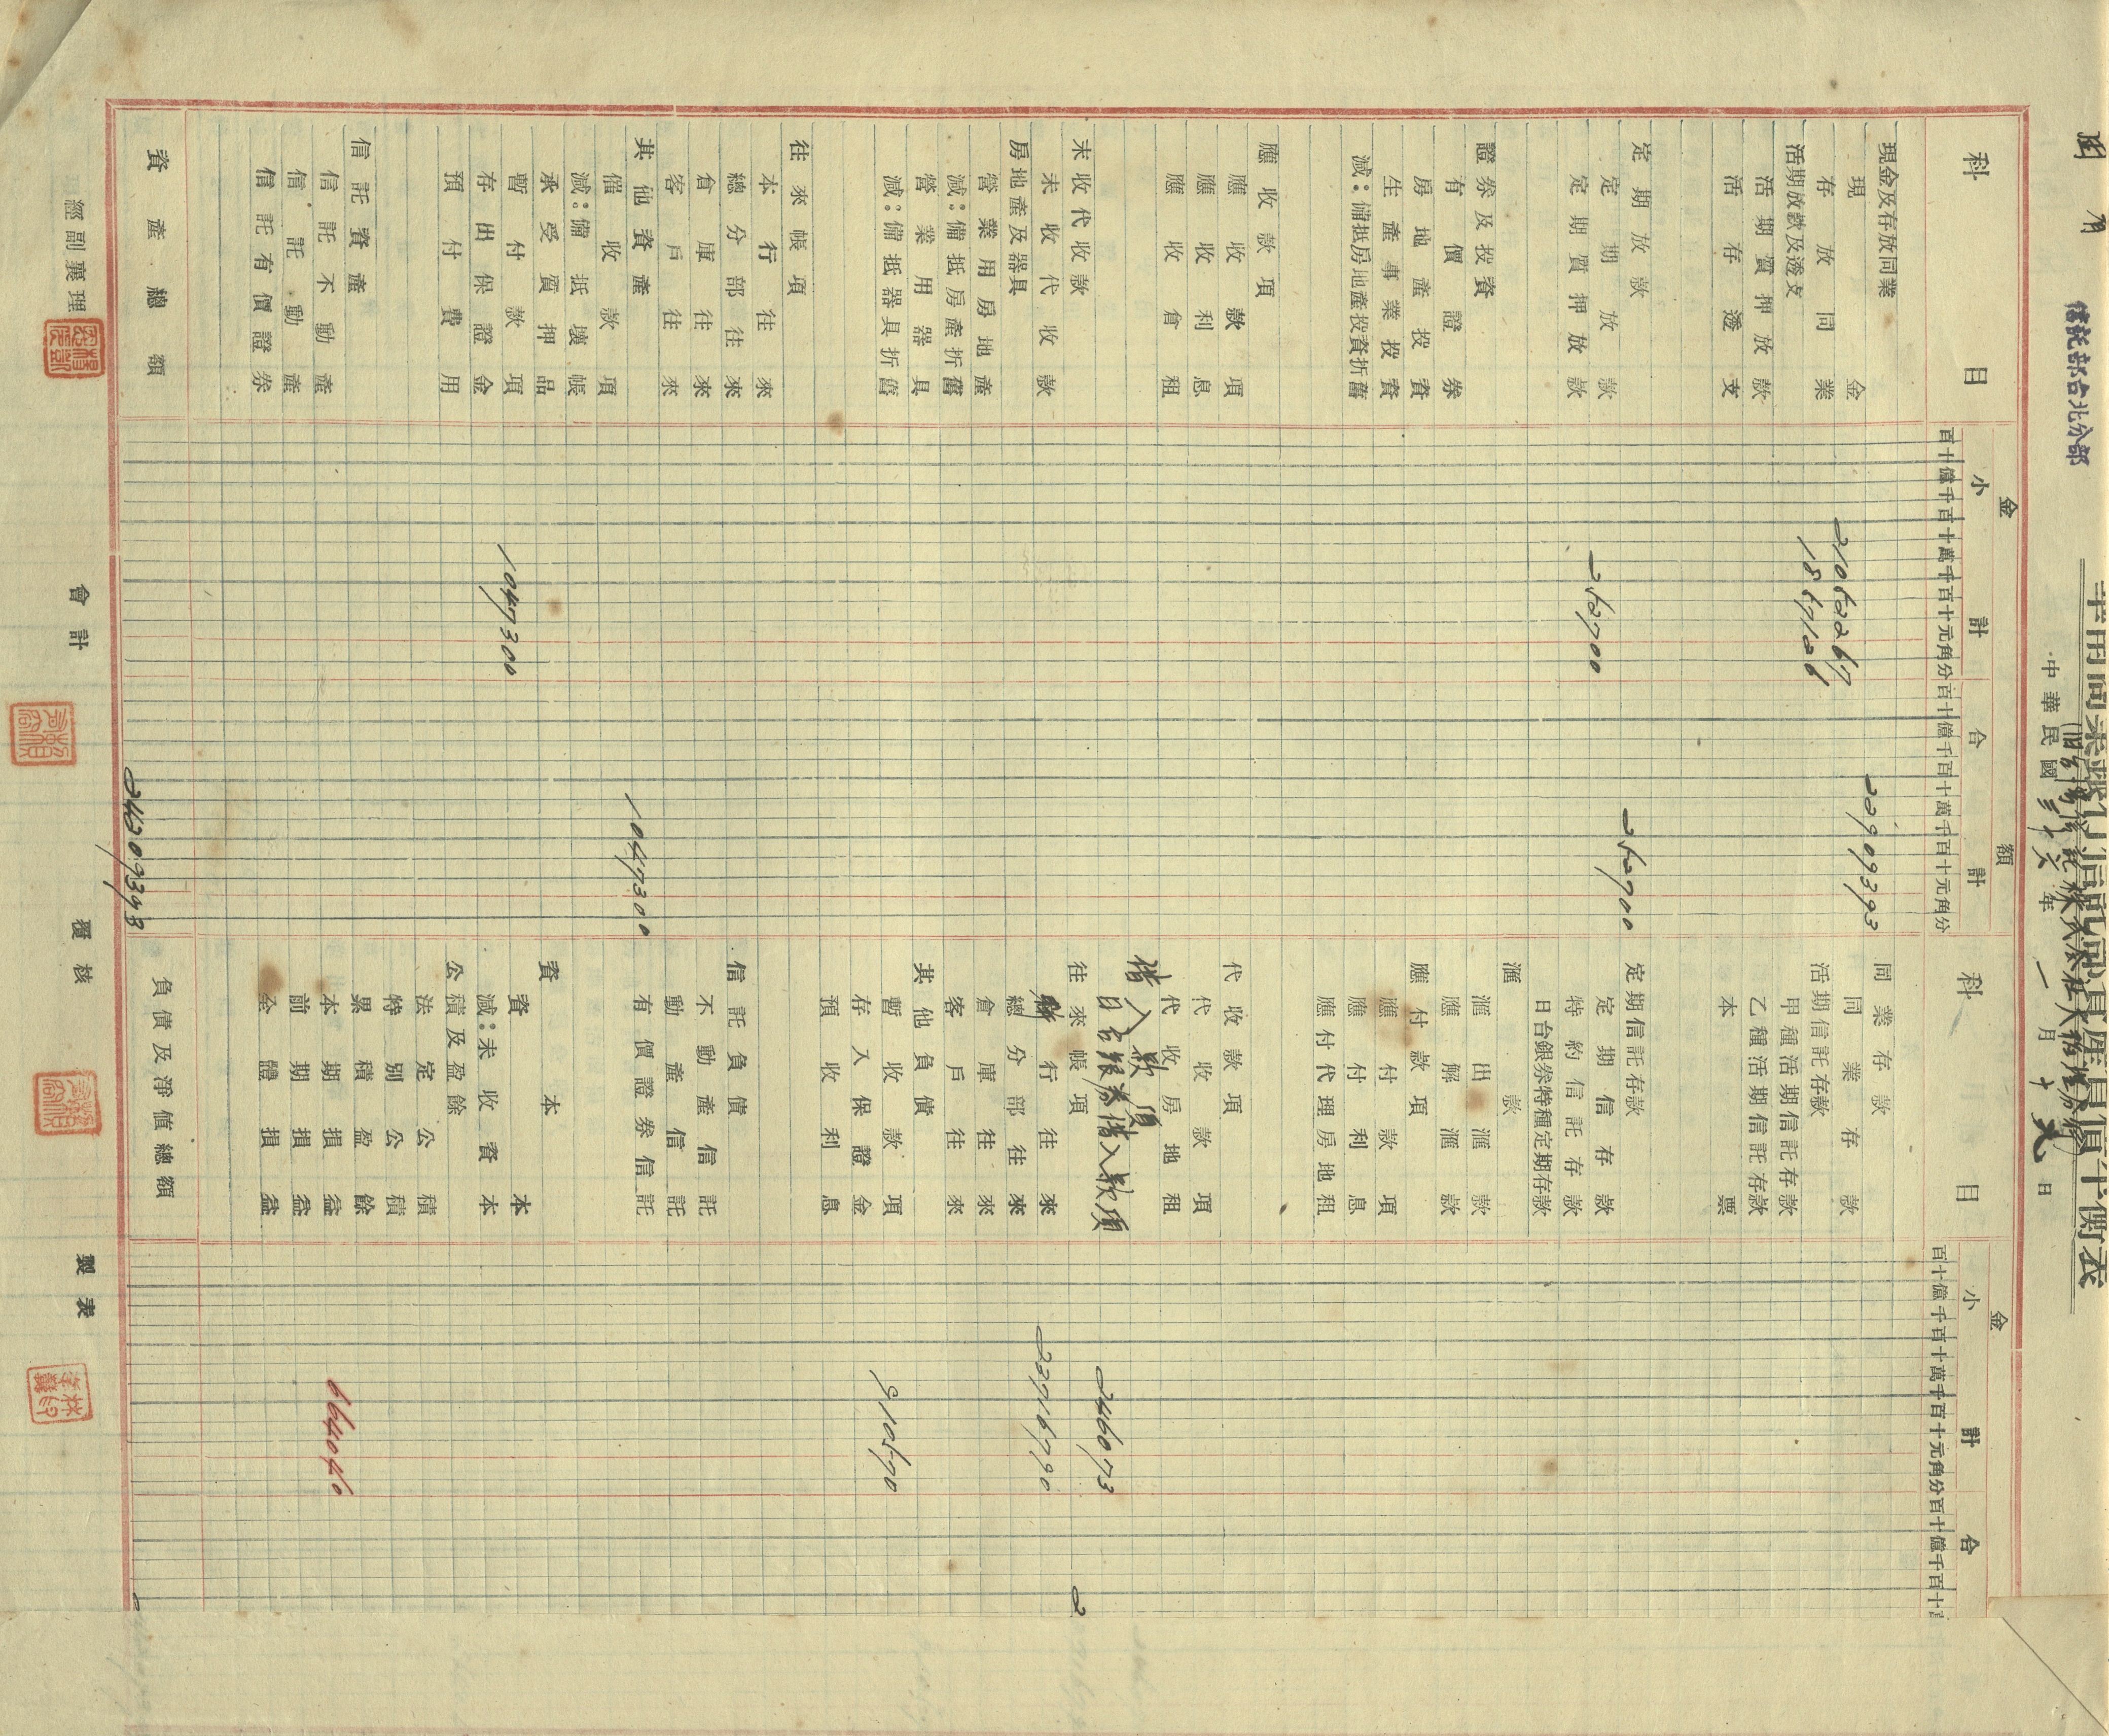 關 有
信託部台北分部
華南商業銀行信託部資產負債平衡表
中華民國 三十六年 一月 十九日
科 目
金 額
小 計
合 計
百十億千百十萬千百十元角分
百十億千百十萬千百十元角分
現金及存放同業 22909393
現金 21062267
存放同業 1847126
活期放款及透支
活期質押放款
活存透支
定期放款 252700
定期放款 252700
定期質押放款
證券及投資
有價證券
房地產投資
生產事業投資
減:備抵房地產投資折舊
應收款項
應收款項
應收利息
應收倉租
未收代收款
未收代收款
房地產及器具
營業用房地產
減:備抵房產折舊
營業用器具
減:備抵器具折舊
往來帳項
本行往來
總分部往來
倉庫往來
客戶往來
其他資產 1047300
催收款項
減:備抵壞帳
承受質押品
暫付款項 1047300
存出保證金
預付費用
信託資產
信託不動產
信託動產
信託有價證券
資產總額 24209393
科 目
金
小 計
合
百十億千百十萬千百十元角分
百十億千百十
同業存款
同業存款
活期信託存款
甲種活期信託存款
乙種活期信託存款
本票
定期信託存款
定期信存款
特約信託存款
日台銀券特種定期存款
匯款
匯出匯款
匯解匯款
應付款項
應付款項
應付利息
應付代理房地租
代收款項
代收款項
代收房地租
借入款項
日台銀券借入款項 246073
往來帳項 2
行往來 23716790
總分部往來
倉庫往來
客戶往來
其他負債
暫收款項 910570
存入保證金
預收利息
信託負債
不動產信託
動產信託
有價證券信託
資本
資本
減:未收資本
公積及盈餘
法定公積
特別公積
累積盈餘
本期損益 664040
前期損益
全體損益
負債及淨值總額
經副襄理
會計
覆核
製表